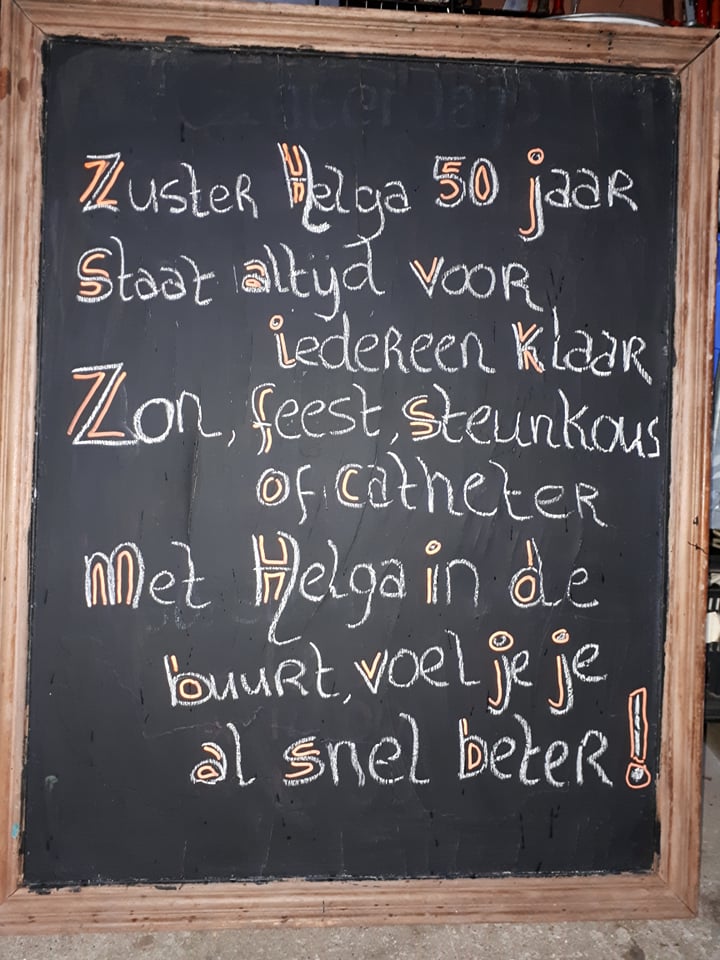 Zuster Helga 50 jaar
Staat altijd voor
iedereen klaar
Zon, feest, steunkous
of catheter
Met Helga in de
buurt, voel je je
al snel beter!